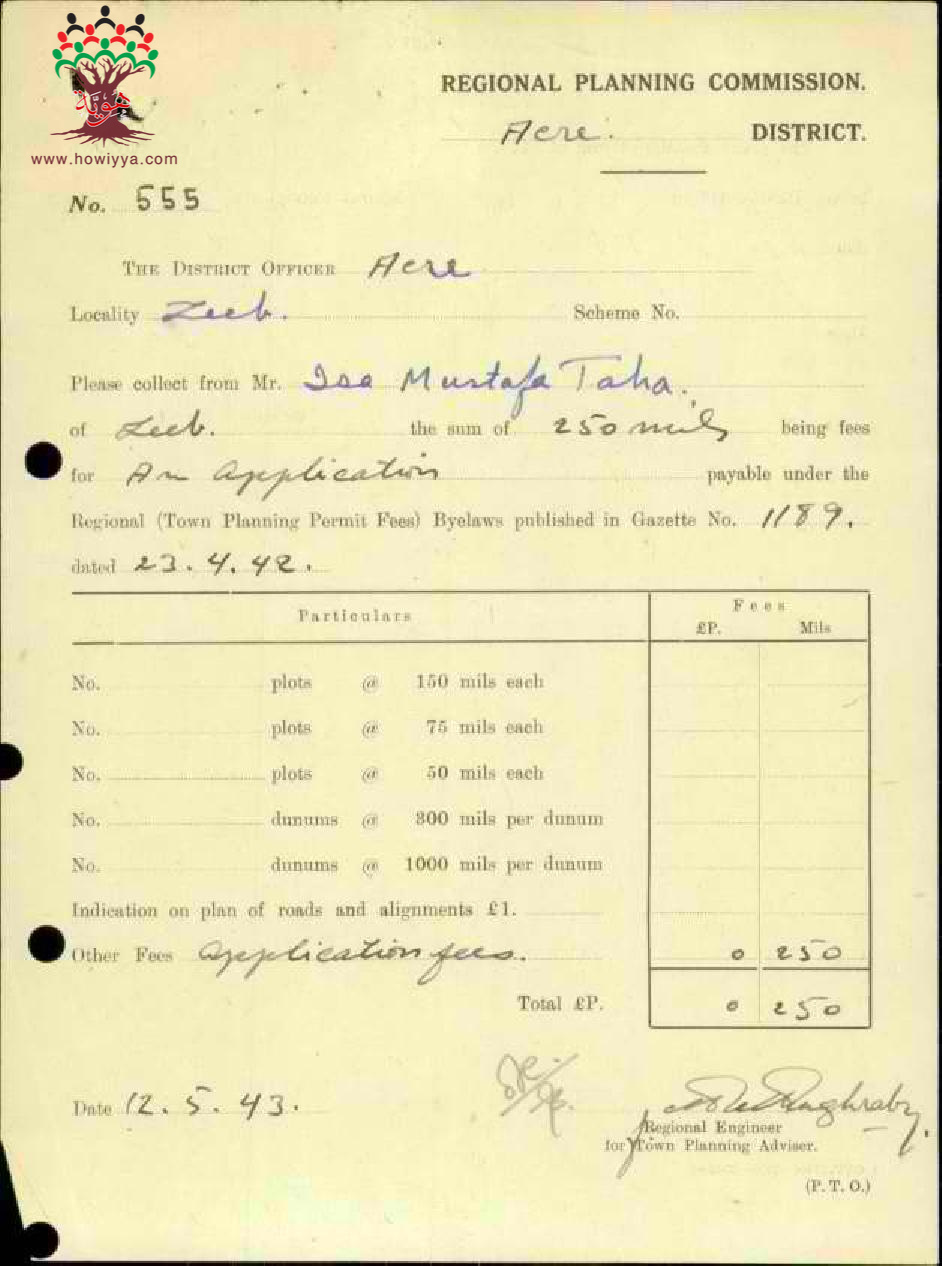 هوية
www.howiyya.com
REGIONAL PLANNING COMMISSION.
Acre. DISTRICT.
No. 555
THE DISTRICT OFFICER Acre
Locality Zeeb. Scheme No.
Please collect from Mr. Isa Mustafa Taha.
of Zeeb. the sum of 250 mils being fees
for An application payable under the
Regional (Town Planning Permit Fees) Byelaws published in Gazette No. 1189.
dated 23.4.42.
Particulars Fees
£P. Mils
No. plots @ 150 mils each
No. plots @ 75 mils each
No. plots @ 50 mils each
No. dunums @ 300 mils per dunum
No. dunums @ 1000 mils per dunum
Indication on plan of roads and alignments £1.
Other Fees application fees. 0 250
Total £P. 0 250
Date 12.5.43.
Regional Engineer
for Town Planning Adviser.
(P. T. O.)